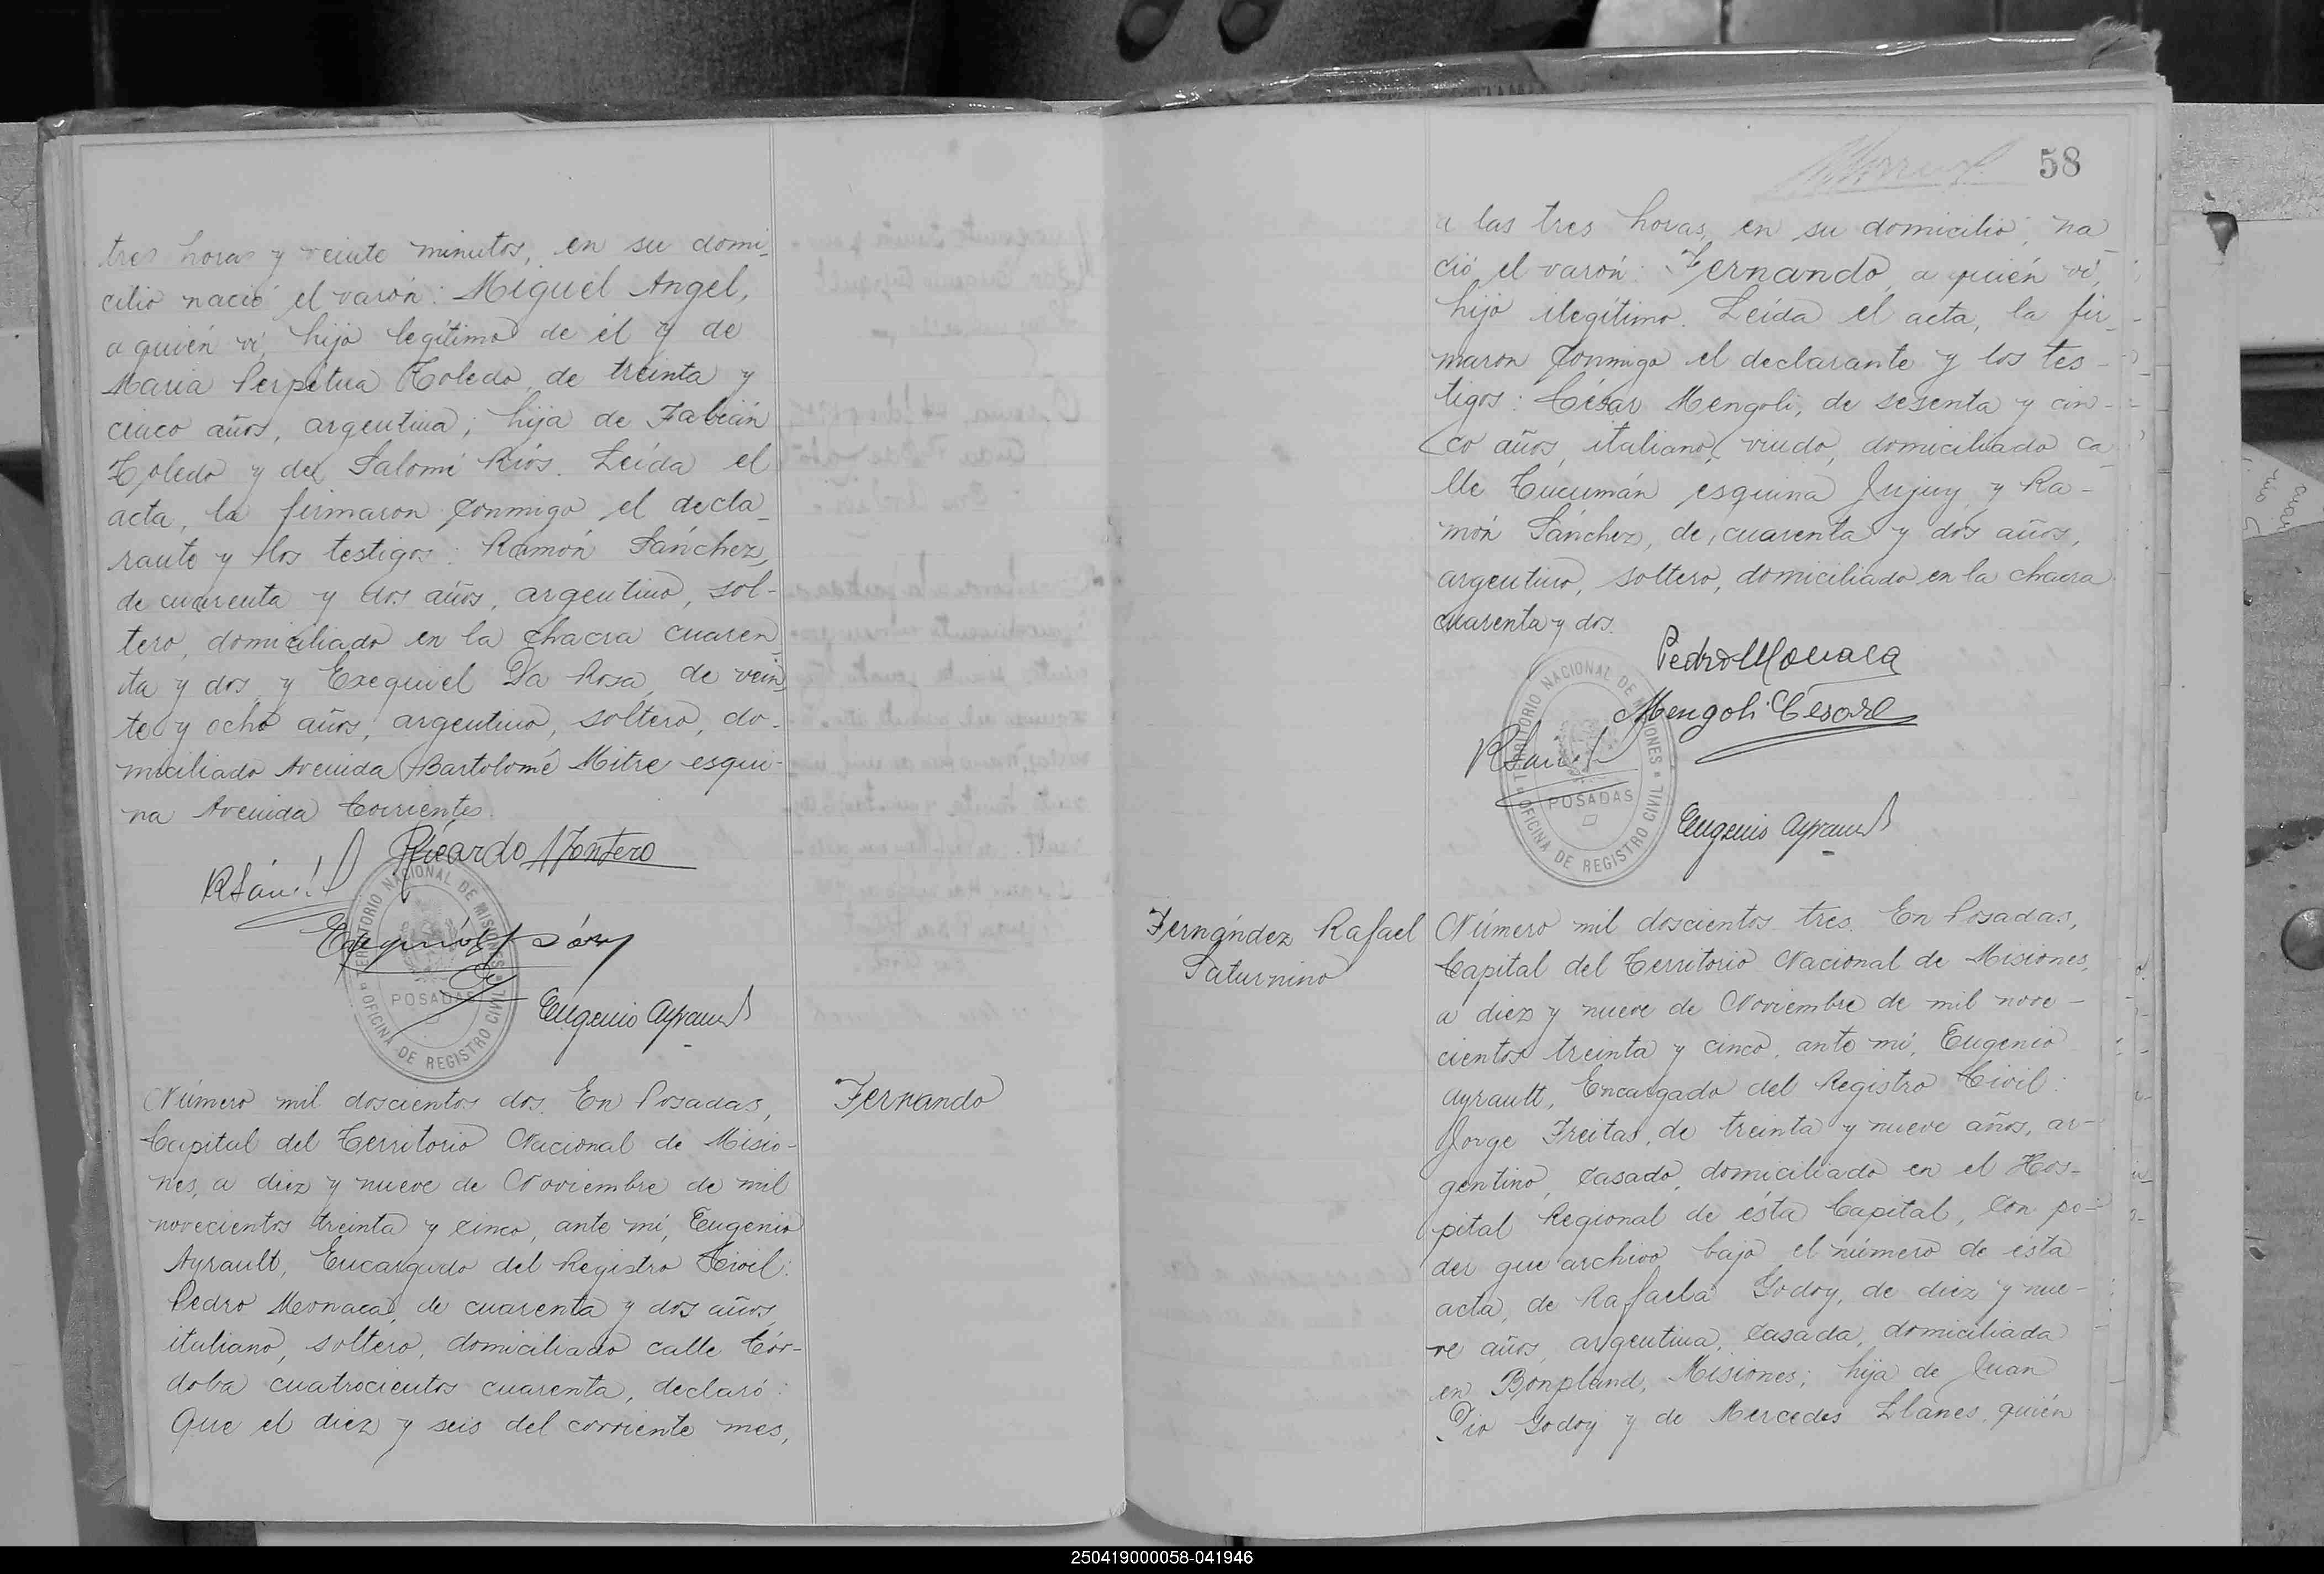 tres horas y veinte minutos, en su domi-
cilio nació el varón: Miguel Angel,
a quién ví, hijo legítimo de él y de
María Perpétua Toledo, de treinta y
cinco años, argentina; hija de Fabián
Toledo y de Salomé Ríos. Leída el
acta, la firmaron conmigo el decla-
rante y los testigos: Ramón Sánchez,
de cuarenta y dos años, argentino, sol-
tero, domiciliado en la chacra cuaren-
ta y dos, y Exequiel Da Rosa, de vein-
te y ocho años, argentino, soltero, do-
miciliado Avenida Bartolomé Mitre esqui-
na Avenida Corrientes.
Ricardo Montero
TERRITORIO NACIONAL DE MISIONES
POSADAS
OFICINA DE REGISTRO CIVIL
Eugenio Ayrault
Número mil doscientos dos. En Posadas,
Capital del Territorio Nacional de Misio-
nes, a diez y nueve de Noviembre de mil
novecientos treinta y cinco, ante mí, Eugenio
Ayrault, Encargado del Registro Civil:
Pedro Meonaca, de cuarenta y dos años,
italiano, soltero, domiciliado calle Cór-
doba cuatrocientos cuarenta, declaró:
Que el diez y seis del corriente mes,
Fernando
58
a las tres horas, en su domicilio, na-
ció el varón: Fernando, a quién ví,
hijo ilegítimo. Leída el acta, la fir-
maron conmigo el declarante y los tes-
tigos: César Mengoli, de sesenta y cin-
co años, italiano, viudo, domiciliado ca-
lle Tucumán esquina Jujuy y Ra-
món Sánchez, de cuarenta y dos años,
argentino, soltero, domiciliado en la chacra
cuarenta y dos.
Pedro Monaca
Mengoli Cesare
TERRITORIO NACIONAL DE MISIONES
POSADAS
OFICINA DE REGISTRO CIVIL
Eugenio Ayrault
Fernández Rafael
Saturnino
Número mil doscientos tres. En Posadas,
Capital del Territorio Nacional de Misiones,
a diez y nueve de Noviembre de mil nove-
cientos treinta y cinco, ante mí, Eugenio
Ayrault, Encargado del Registro Civil:
Jorge Freitas, de treinta y nueve años, ar-
gentino, casado, domiciliado en el Hos-
pital Regional de ésta Capital, con po-
der que archivo bajo el número de ésta
acta, de Rafaela Godoy, de diez y nue-
ve años, argentina, casada, domiciliada
en Bonpland, Misiones; hija de Juan
Pío Godoy y de Mercedes Llanes, quién
250419000058-041946